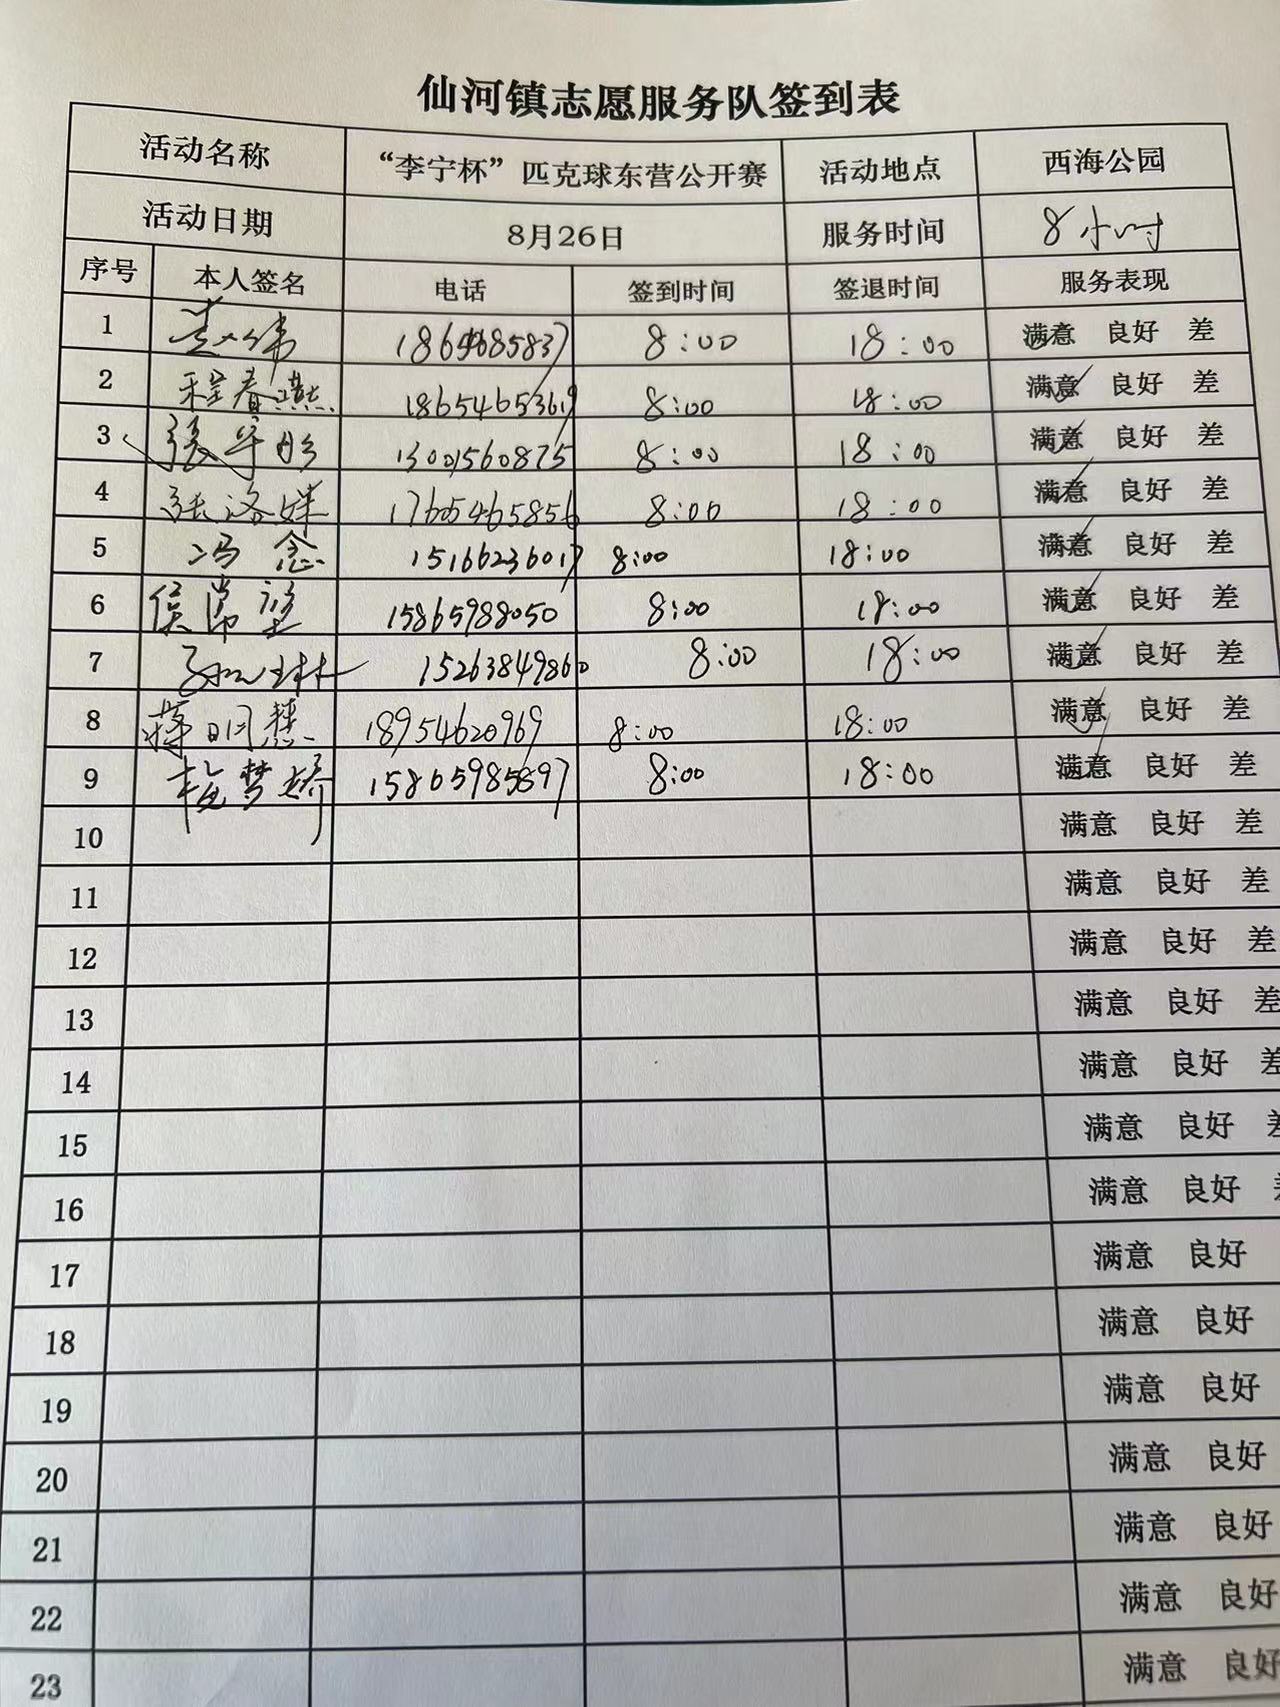 仙河镇志愿服务队签到表
活动名称 “李宁杯”匹克球东营公开赛 活动地点 西海公园
活动日期 8月26日 服务时间 8小时
序号 本人签名 电话 签到时间 签退时间 服务表现
1 8:00 18:00 满意 良好 差
2 程春燕 18654653619 8:00 18:00 满意 良好 差
3 13001560875 8:00 18:00 满意 良好 差
4 张洛嫌 17605465856 8:00 18:00 满意 良好 差
5 冯念 15166236017 8:00 18:00 满意 良好 差
6 侯常 15865988050 8:00 18:00 满意 良好 差
7 15263849860 8:00 18:00 满意 良好 差
8 蒋明慧 18954620969 8:00 18:00 满意 良好 差
9 梦娇 15865985897 8:00 18:00 满意 良好 差
10 满意 良好 差
11 满意 良好 差
12 满意 良好 差
13 满意 良好 差
14 满意 良好 差
15 满意 良好
16 满意 良好
17 满意 良好
18 满意 良好
19 满意 良好
20 满意 良好
21 满意 良好
22 满意 良好
23 满意 良好